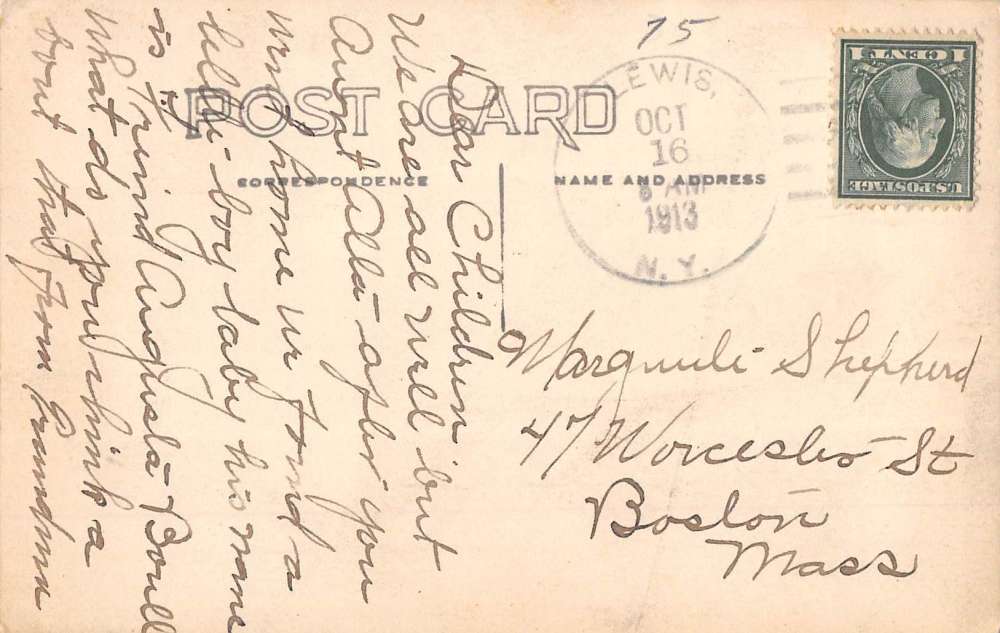 75
POST CARD
CORRESPONDENCE
NAME AND ADDRESS
LEWIS,
OCT
16
AM
1913
N.Y.
1 CENT 1
U.S. POSTAGE
Dear Children
We are all well but
Aunt Alla after you
went home we found a
little boy baby his name
is Trvind Augusta Boull
What do you think a
bout that from Grandma
Marguerite Shepherd
47 Worcester St
Boston
Mass